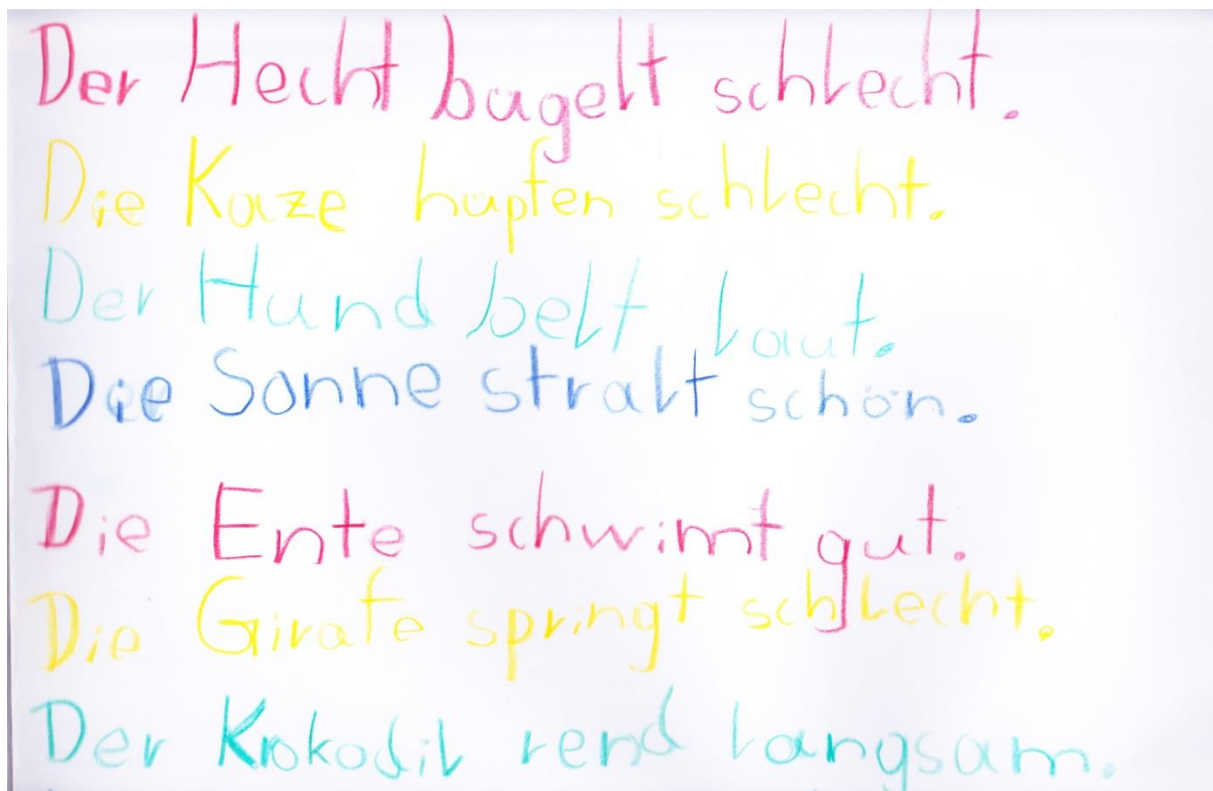 Der Hecht bugelt schlecht.
Die Kaze hupfen schlecht.
Der Hund belt laut.
Die Sonne stralt schön.
Die Ente schwimt gut.
Die Girafe springt schlecht.
Der Krokodil rend langsam.